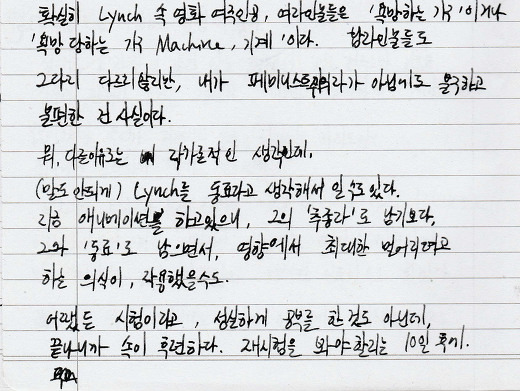 확실히 Lynch 속 영화 여주인공, 여라인물들은 '욕망하는 가구'이거나
'욕망 당하는 가구 Machine, 기계'이다. 남라인물들도
그다지 다르지 않지만, 내가 페미니스트 아님에도 불구하고
불편한 건 사실이다.
뭐, 다른이유로는 작가로적인 생각인데,
(말도 안되게) Lynch를 동료라고 생각해서 일 수도 있다.
지금 애니메이션을 하고있으니, 그의 '추종자'로 남기보다,
그와 '동료'로 남으면서, 영향에서 최대한 멀어지려고
하는 의식이, 작용했을수도.
어쨌든 시험이라고, 성실하게 공부를 한것도 아닌데,
끝나니까 속이 후련하다. 재시험을 봐야할지는 10일 후에.